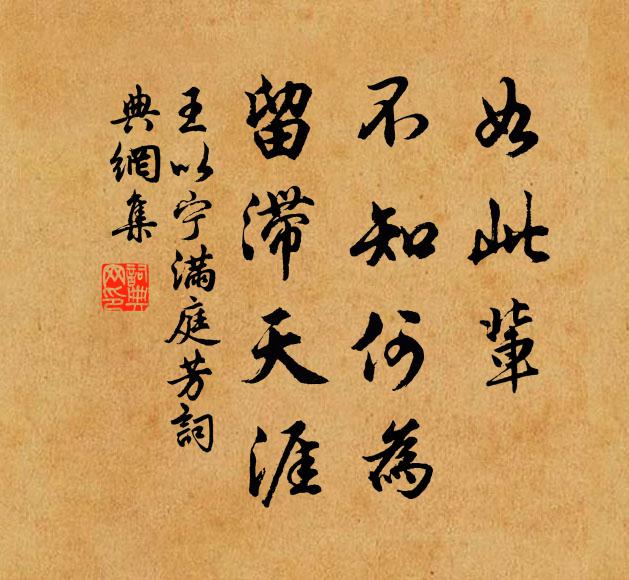 如此輩
不知何為
留滯天涯
王以宁滿庭芳詞
典網集
詞典網印